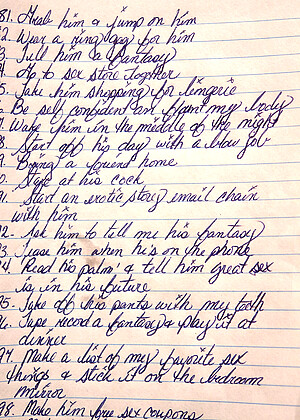 81. Grab him & jump on him
2. Wear a ring gag for him
3. Tell him a fantasy
4. Go to sex store together
5. Take him shopping for lingerie
Be self confident an flaunt my body
7. Wake him in the middle of the night
8. Start off his day with a blow job
9. Bring a friend home
0. Stare at his cock
91. Start an erotic story email chain
with him
92. Ask him to tell me his fantasy
93. Tease him when he's on the phone
94. Read his palm & tell him great sex
is in his future
95. Take off his pants with my teeth
96. Tape record a fantasy & play it at
dinner
97. Make a list of my favorite sex
things & stick it on the bedroom
mirror
98. Make him free sex coupons